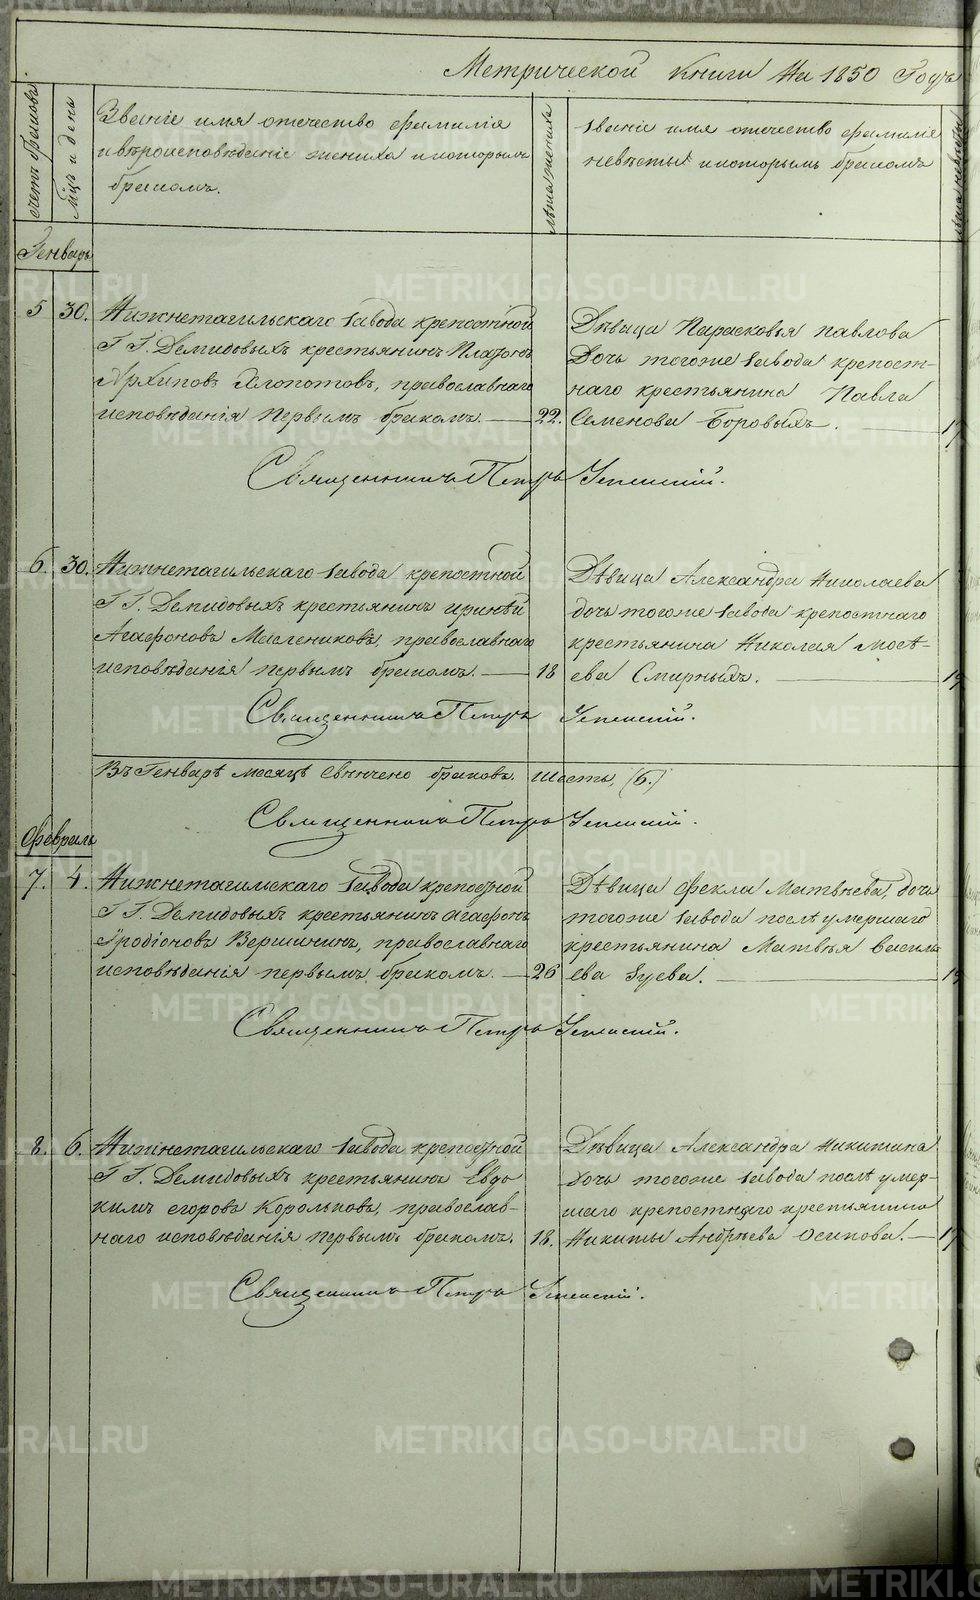 Метрической Книги На 1850 Годъ
счетъ браковъ
мцъ и день
Званіе имя отечество фамиліе
и вѣроисповѣданіе жениха и которымъ
бракомъ.
лѣта жениха
Званіе имя отечество фамиліе
невѣсты и которымъ бракомъ
Генварь
5 30. Нижнетагильскаго завода крепостной
Г. Г. Демидовыхъ крестьянинъ Платонъ
Архиповъ Хлопотовъ, православнаго
исповѣданія первымъ бракомъ. 22.
Дѣвица Парасковья павлова
Дочь тогоже завода крепост-
наго крестьянина Павла
Семенова Боровыхъ. 17
Священникъ Петръ Успенскій.
6. 30. Нижнетагильскаго завода крепостной
Г. Г. Демидовыхъ крестьянинъ иринѣй
Агафоновъ Маслениковъ, православнаго
исповѣданія первымъ бракомъ. 18
Дѣвица Александра Николаева
дочь тогоже завода крепостнаго
крестьянина Николая мосѣ-
ева Смирныхъ.
Священникъ Петръ Успенскій.
Въ Генварѣ месяцѣ свѣнчено браковъ. Шесть, (6.)
Священникъ Петръ Успенскій.
Февраль
7. 4. Нижнетагильскаго завода крепостной
Г. Г. Демидовыхъ крестьянинъ агафонъ
Іродіоновъ Вершининъ, православнаго
исповѣданія первымъ бракомъ. 26
Дѣвица Фекла Матвѣева, дочь
тогоже завода послѣ умершаго
крестьянина Матвѣя Василь
ева Зуева.
Священникъ Петръ Успенскій.
8. 6. Нижнетагильскаго завода крепостной
Г. Г. Демидовыхъ крестьянинъ Евдо
кимъ егоровъ Корольковъ, православ-
наго исповѣданія первымъ бракомъ. 18.
Дѣвица Александра Никитина
Дочь тогоже завода послѣ умер-
шаго крепостнаго крестьянина
Никиты Андрѣева Осипова. 17
Священникъ Петръ Успенскій.
METRIKI.GASO-URAL.RU